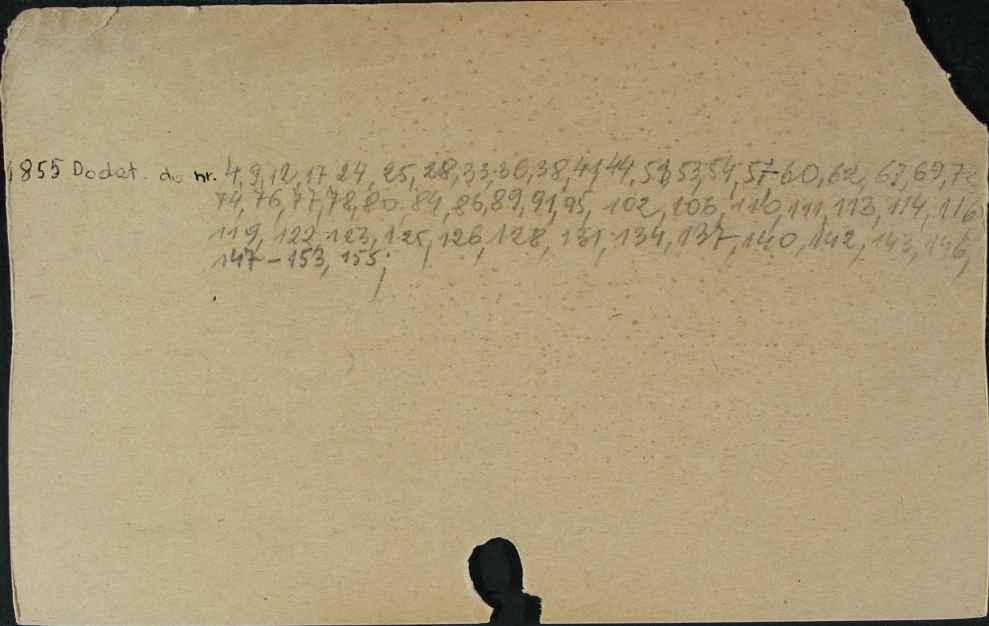 1855 Dodat. do nr. 4, 9, 12, 17, 24, 25, 28, 33, 36, 38, 41, 44, 51, 53, 54, 57-60, 62, 67, 69, 73
74, 76, 77, 78, 80, 84, 86, 89, 91, 95, 102, 106, 110, 111, 113, 114, 116
119, 122, 123, 125, 126, 128, 131, 134, 137, 140, 142, 143, 146,
147-153, 155;